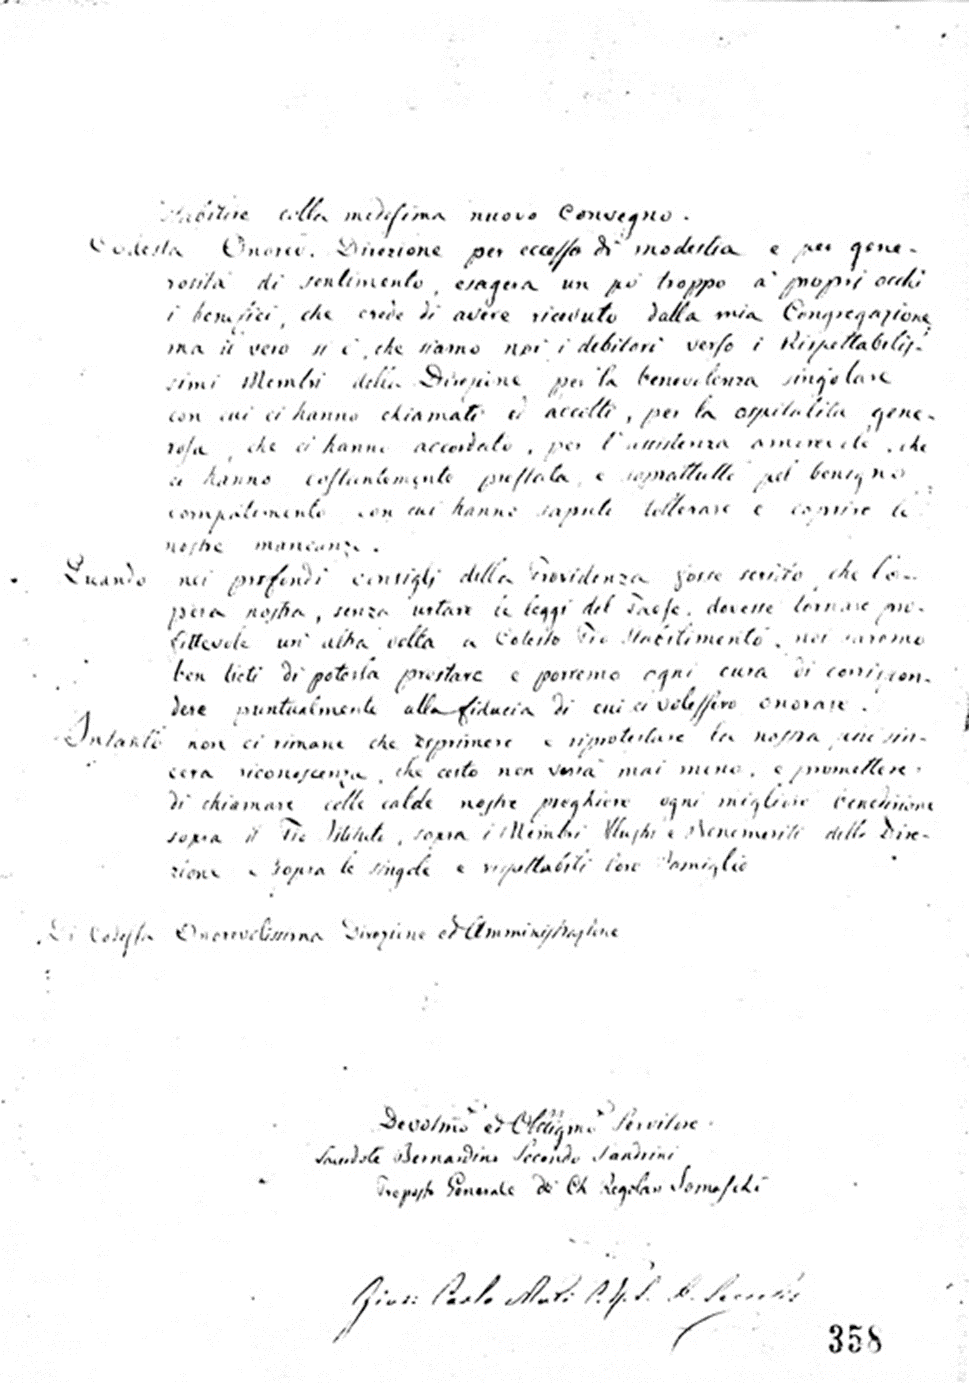 stabilire colla medesima nuovo Convegno.
Codesta Onorev. Direzione per eccesso di modestia e per gene-
rosità di sentimento, esagera un po' troppo a' proprj occhi
i benefici, che crede di avere ricevuto dalla mia Congregazione,
ma il vero si è, che siamo noi i debitori verso i Rispettabilis-
simi Membri della Direzione per la benevolenza singolare
con cui ci hanno chiamati ed accolti, per la ospitalità gene-
rosa, che ci hanno accordato, per l'assistenza amorevole, che
ci hanno costantemente prestata, e soprattutto pel benigno
compatimento con cui hanno saputo tollerare e coprire le
nostre mancanze.
Quando nei profondi consigli della Provvidenza fosse scritto che l'o-
pera nostra, senza urtare le leggi del Paese, dovesse tornare pro-
fittevole un' altra volta a Cotesto Pio Stabilimento, noi saremo
ben lieti di poterla prestare e porremo ogni cura di corrispon-
dere puntualmente alla fiducia di cui ci volessero onorare.
Intanto non ci rimane che esprimere e riprotestare la nostra più sin-
cera riconoscenza, che certo non verrà mai meno, e promettere
di chiamare colle calde nostre preghiere ogni migliore benedizione
sopra il Pio Istituto, sopra i Membri e Benemeriti della Dire-
zione e sopra le singole e rispettabili loro Famiglie
Di Codesta Onorevolissima Direzione ed Amministrazione
Devotmo ed Obbligmo Servitore
Sacerdote Bernardino Secondo Sandrini
Preposto Generale dei Ch. Regolari Somaschi
Carlo
358